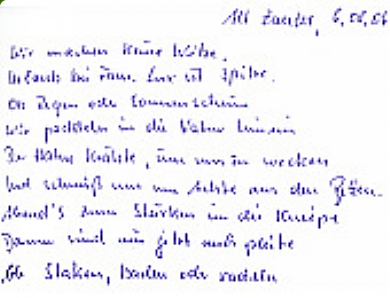 Alt Zauche, 6.08.06
Wir machen keine Witze,
Urlaub bei Fam. Lux ist Spitze.
Ob Regen oder Sonnenschein
Wir paddeln in die Natur hinein
Der Hahn krähte, um uns zu wecken
Und schmeißt uns um aus den Betten.
Abend's zum Stärken in die Kneipe
Dann sind wir jetzt auch pleite
Ob Staken, baden oder radeln